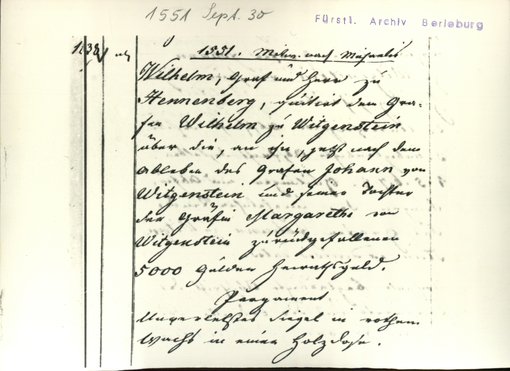 1551 Sept. 30
Fürstl. Archiv Berleburg
1551. Mittw. nach Michaelis
Wilhelm, Graf und Herr zu
Hennenberg, quittirt dem Gra-
fen Wilhelm zu Witgenstein
über die, an ihn, jetzt nach dem
Ableben des Grafen Johann von
Witgenstein und seiner Tochter
der Gräfin Margarethe von
Witgenstein zurückgefallenen
5000 Gulden Heirathsgeld.
Pergament
Unverletztes Siegel in rothem
Wachs in einer Holzdose.